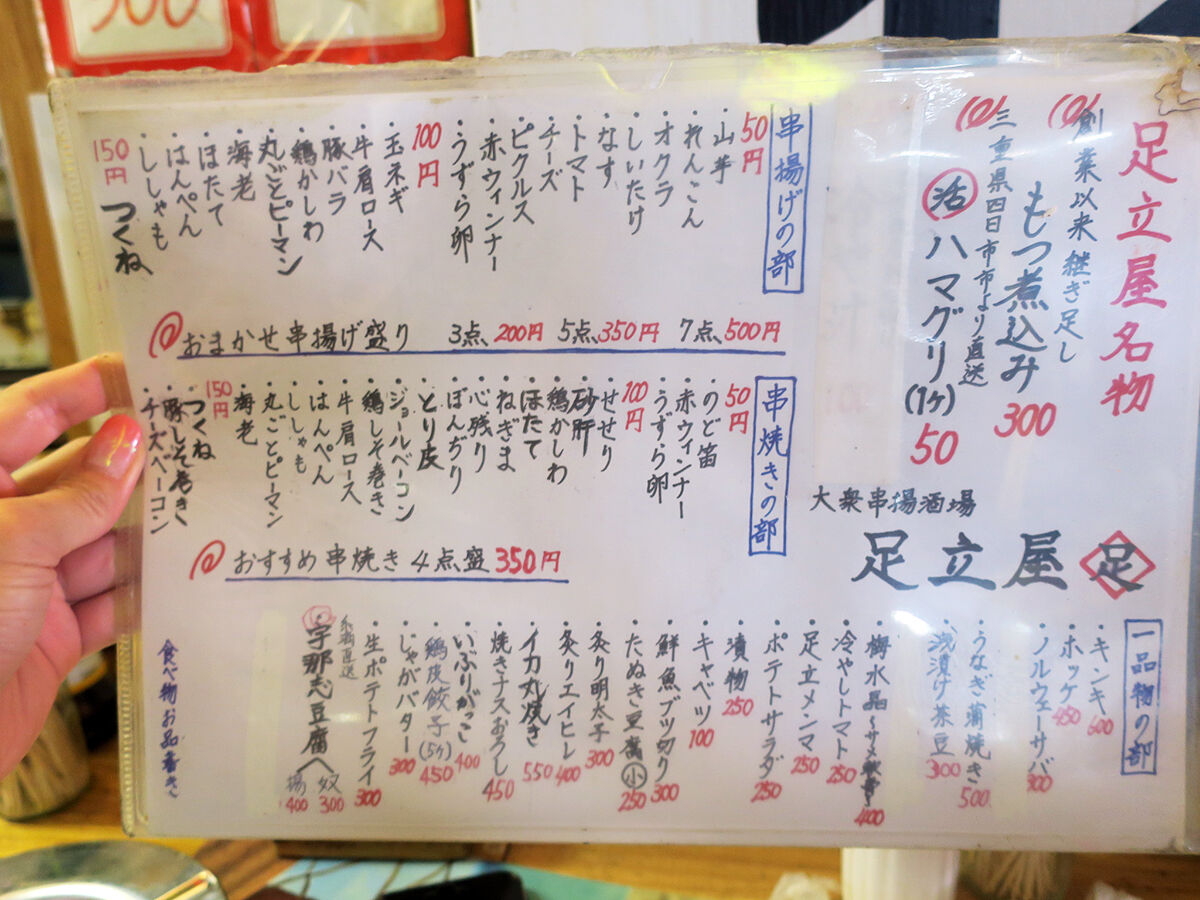 足立屋名物
創業以来継ぎ足し
もつ煮込み 300
三重県四日市市より直送
活ハマグリ(1ヶ) 50
大衆串揚酒場
足立屋 足
串揚げの部
50円
・山芋
・れんこん
・オクラ
・しいたけ
・なす
・トマト
・チーズ
・ピクルス
・赤ウィンナー
・うずら卵
100円
・玉ネギ
・牛肩ロース
・豚バラ
・鶏かしわ
・丸ごとピーマン
・海老
・ほたて
・はんぺん
・ししゃも
150円 つくね
おまかせ串揚げ盛り 3点、200円 5点、350円 7点、500円
串焼きの部
50円
・のど笛
・赤ウィンナー
・うずら卵
100円
・せせり
・砂肝
・鶏かしわ
・ほたて
・ねぎま
・心残り
・ぼんぢり
・とり皮
・ジョールベーコン
・鶏しそ巻き
・牛肩ロース
・はんぺん
・ししゃも
・丸ごとピーマン
・海老
150円
・つくね
・豚しそ巻き
・チーズベーコン
おすすめ串焼き 4点盛 350円
一品物の部
・キンキ 600
・ホッケ 450
・ノルウェーサバ 300
・うなぎ蒲焼き 500
・浅漬け茶豆 300
・梅水晶〜サメ軟骨〜 400
・冷やしトマト 250
・足立メンマ 250
・ポテトサラダ 250
・漬物 250
・キャベツ 100
・鮮魚ブツ切り 300
・たぬき豆腐 小 250
・炙り明太子 300
・炙りエイヒレ 400
・イカ丸焼き 550
・焼きナスおろし 450
・いぶりがっこ 400
・鶏皮餃子(5ヶ) 450
・じゃがバター 300
・生ポテトフライ 300
直送
・宇那志豆腐 奴 300 揚 400
食べ物お品書き